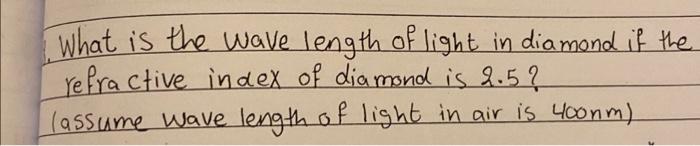 What is the wave length of light in diamond if the
refractive index of diamond is 2.5?
(assume wave length of light in air is 400nm)